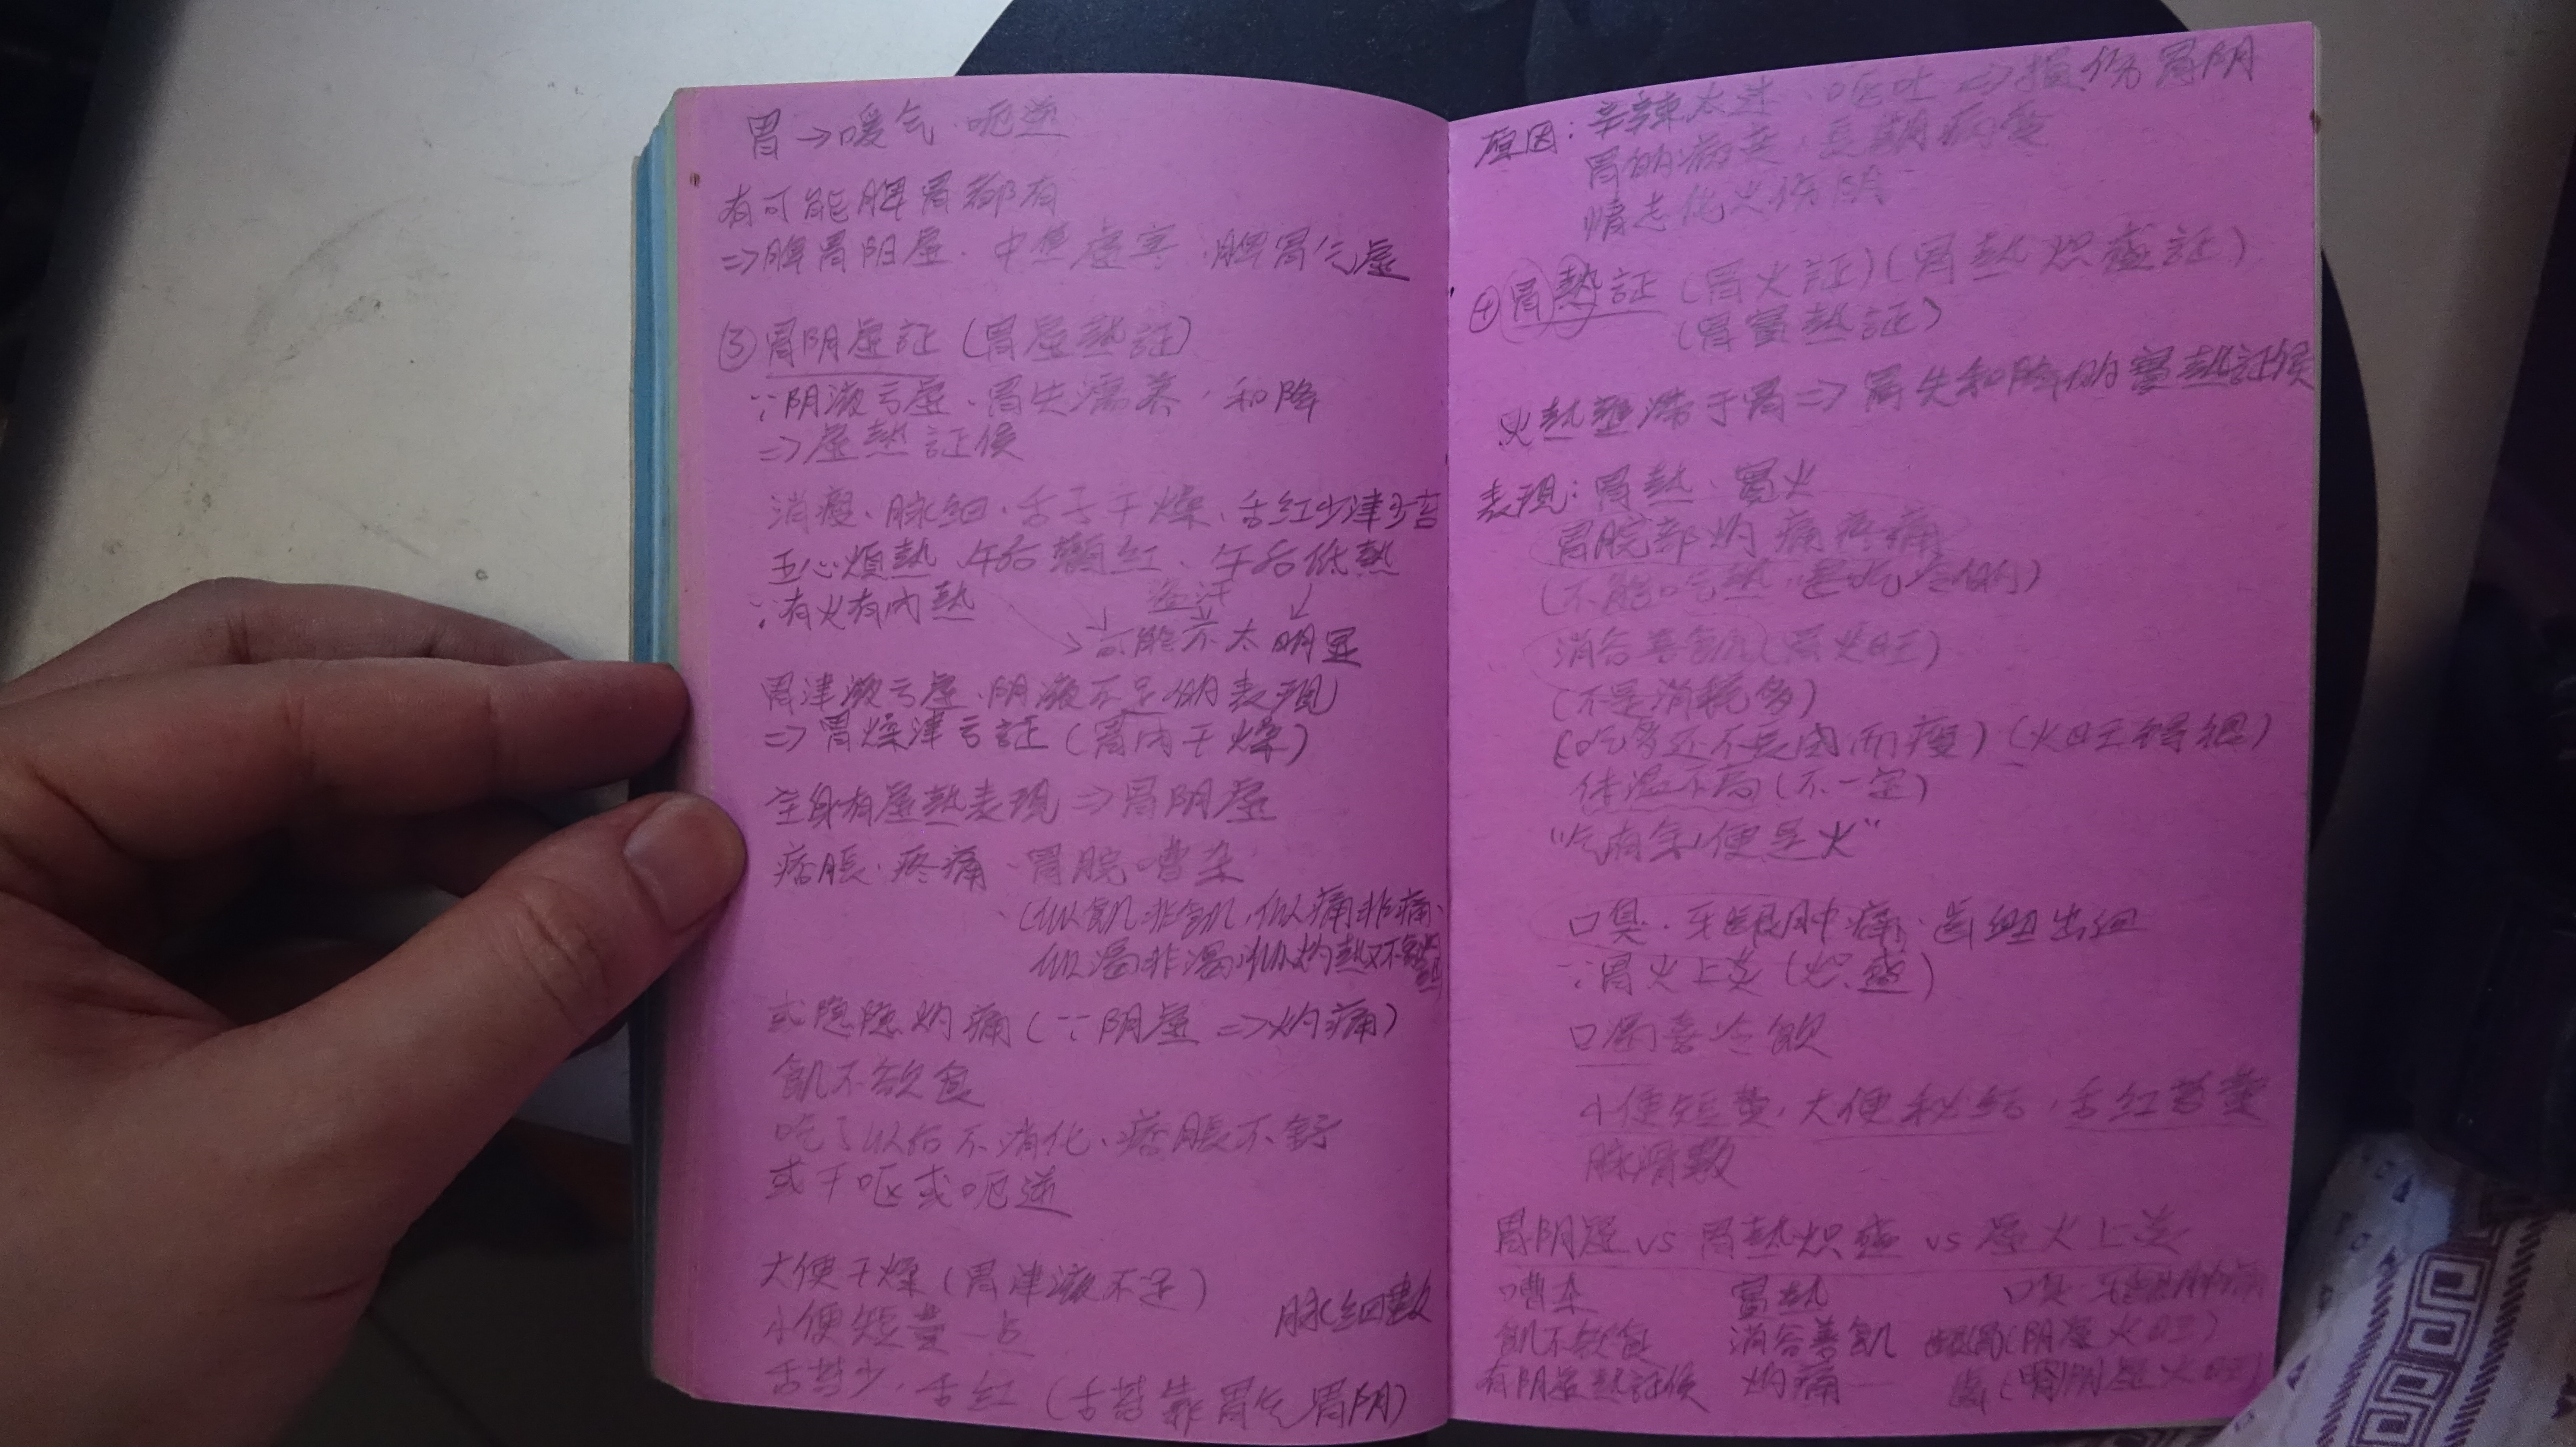 胃→嗳气、呃逆
有可能脾胃都有
⇒脾胃阳虚、中焦虚寒、脾胃气虚
③胃阴虚証(胃虚熱証)
∵阴液亏虚、胃失濡养、和降
⇒虚熱証候
消瘦、脉細、舌干燥、舌紅少津少苔
五心煩熱、午后顴紅、午后低熱
∵有火有内熱 盗汗
可能不太明显
胃津液亏虚、阴液不足的表現)
⇒胃燥津亏証(胃内干燥)
全身有虚熱表現⇒胃阴虚
痞脹、疼痛、胃脘嘈杂
(似飢非飢、似痛非痛、
似渴非渴、似灼熱又不
或隐隐灼痛(∵阴虚⇒灼痛)
飢不欲食
吃了以后不消化、痞脹不舒
或干呕或呃逆
大便干燥(胃津液不足)
小便短黄一点 脉細数
舌苔少、舌紅(舌苔靠胃气胃阴)
原因:辛辣太过、呕吐⇒損伤胃阴
胃的病变、長期病变
情志化火伤阴
④胃熱証(胃火証)(胃熱炽盛証)
(胃實熱証)
火熱壅滞于胃⇒胃失和降的實熱証候
表現:胃熱、實火
胃脘部灼痛疼痛
(不能吃熱、吃冷的)
消谷善飢(胃火旺)
(不是消耗多)
(吃多还不長肉而瘦)(火旺得很)
体温不高(不一定)
“气有余便是火”
口臭、牙齦肿痛、齿衄出血
∵胃火上炎(炽盛)
口渴喜冷飲
小便短黄、大便秘結、舌紅苔黄
脉滑数
胃阴虚 vs 胃熱炽盛 vs 虚火上炎
嘈杂 實熱 口臭、牙齦肿痛
飢不欲食 消谷善飢 (阴虚火旺)
有阴虚熱証候 灼痛 (腎阴虚火旺)